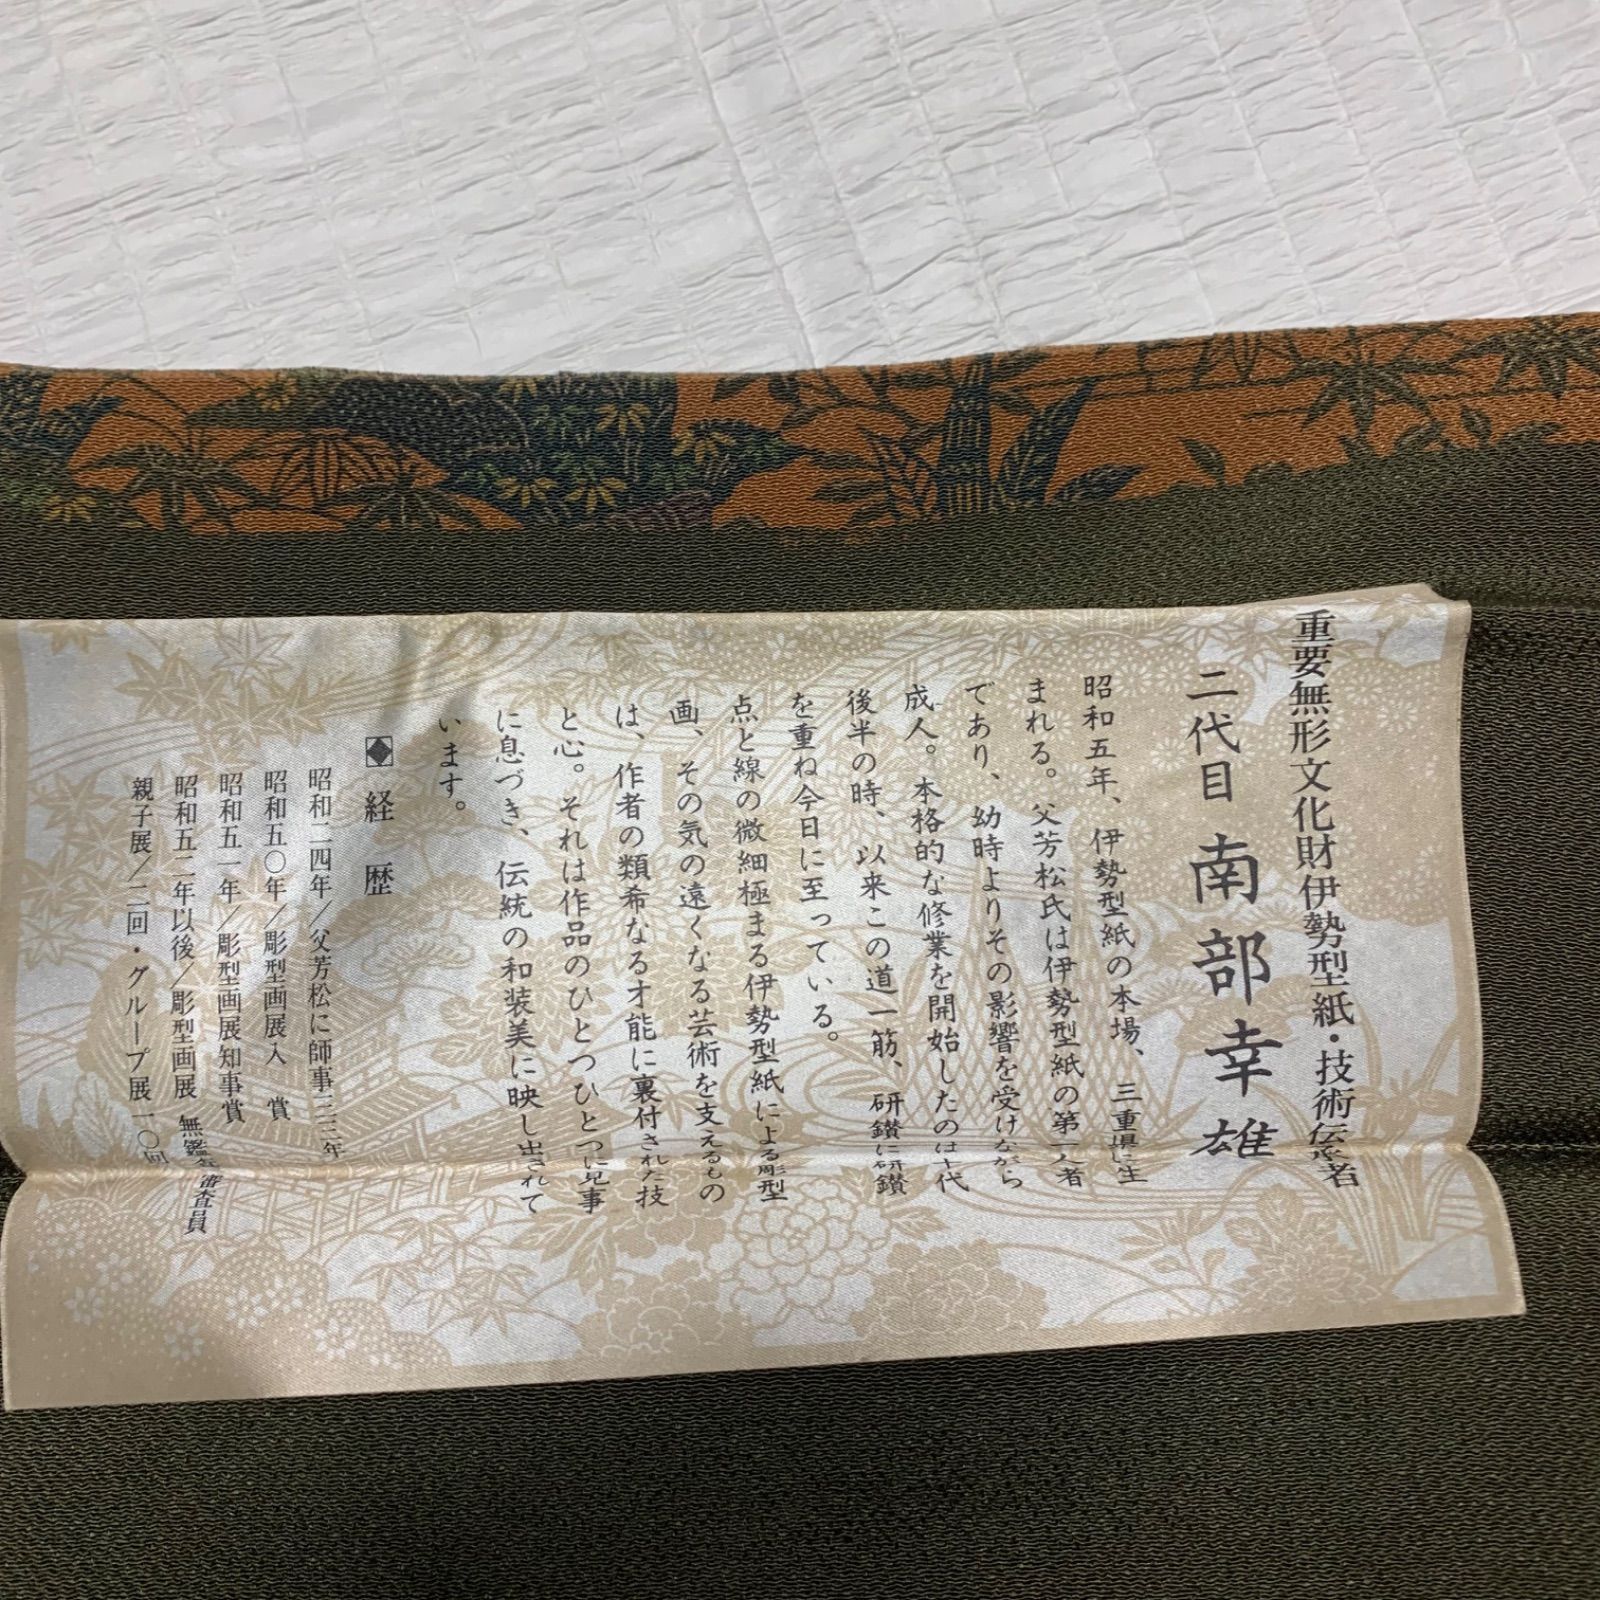 重要無形文化財伊勢型紙・技術伝承者
二代目 南部幸雄
昭和五年、伊勢型紙の本場、三重県に生
まれる。父芳松氏は伊勢型紙の第一人者
であり、幼時よりその影響を受けながら
成人。本格的な修業を開始したのは十代
後半の時、以来この道一筋、研鑚に研鑚
を重ね今日に至っている。
点と線の微細極まる伊勢型紙による彫型
画、その気の遠くなる芸術を支えるもの
は、作者の類希なる才能に裏付された技
と心。それは作品のひとつひとつに見事
に息づき、伝統の和装美に映し出されて
います。
◆経歴
昭和二四年/父芳松に師事三三年
昭和五〇年/彫型画展入賞
昭和五一年/彫型画展知事賞
昭和五二年以後/彫型画展 無鑑査審査員
親子展/二回・グループ展一〇回